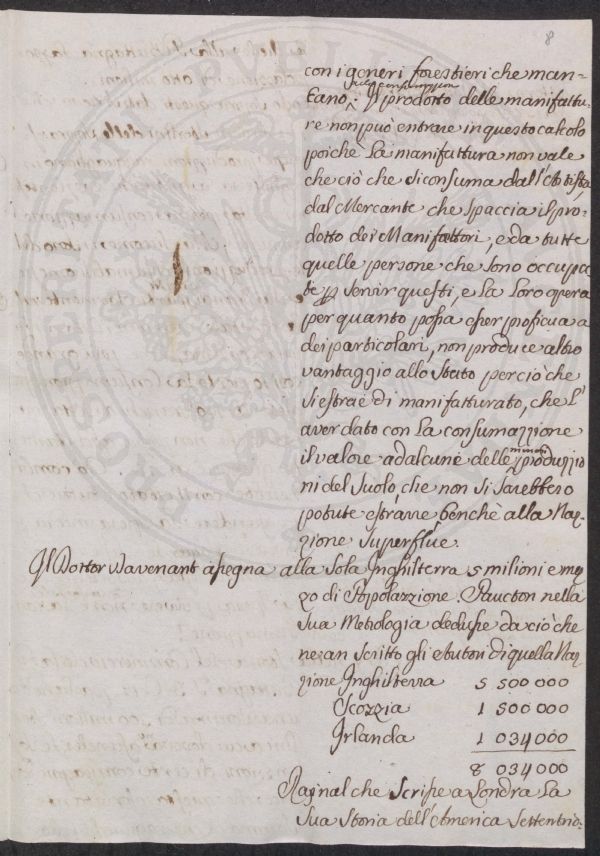 8
con i generi forestieri che man-
cano, nella consumazion Il prodotto delle manifattu-
re non può entrare in questo calcolo
poichè la manifattura non vale
che ciò che si consuma dall'Artista,
dal Mercante che spaccia il pro-
dotto dei Manifattori, e da tutte
quelle persone che sono occupa
te pr servir questi, e la loro opera
per quanto possa esser proficua a
dei particolari, non produce altro
vantaggio allo Stato perciò che
si estrae di manifatturato, che l'
aver dato con la consumazzione
il valore ad alcune delle produzzio
ni del Suolo, che non si sarebbero
potute estrarre, benchè alla Naz-
zione superflue.
Il Dottor Davenant assegna alla sola Inghilterra 5 milioni e mez
zo di Popolazzione. Paucton nella
sua Metrologia dedusse da ciò che
ne han scritto gli Autori di quella Naz-
zione Inghilterra 5 500 000
Scozzia 1 500 000
Irlanda 1 034 000
8 034 000
Raginal che scrisse a Londra la
sua Storia dell'America Settentrio: